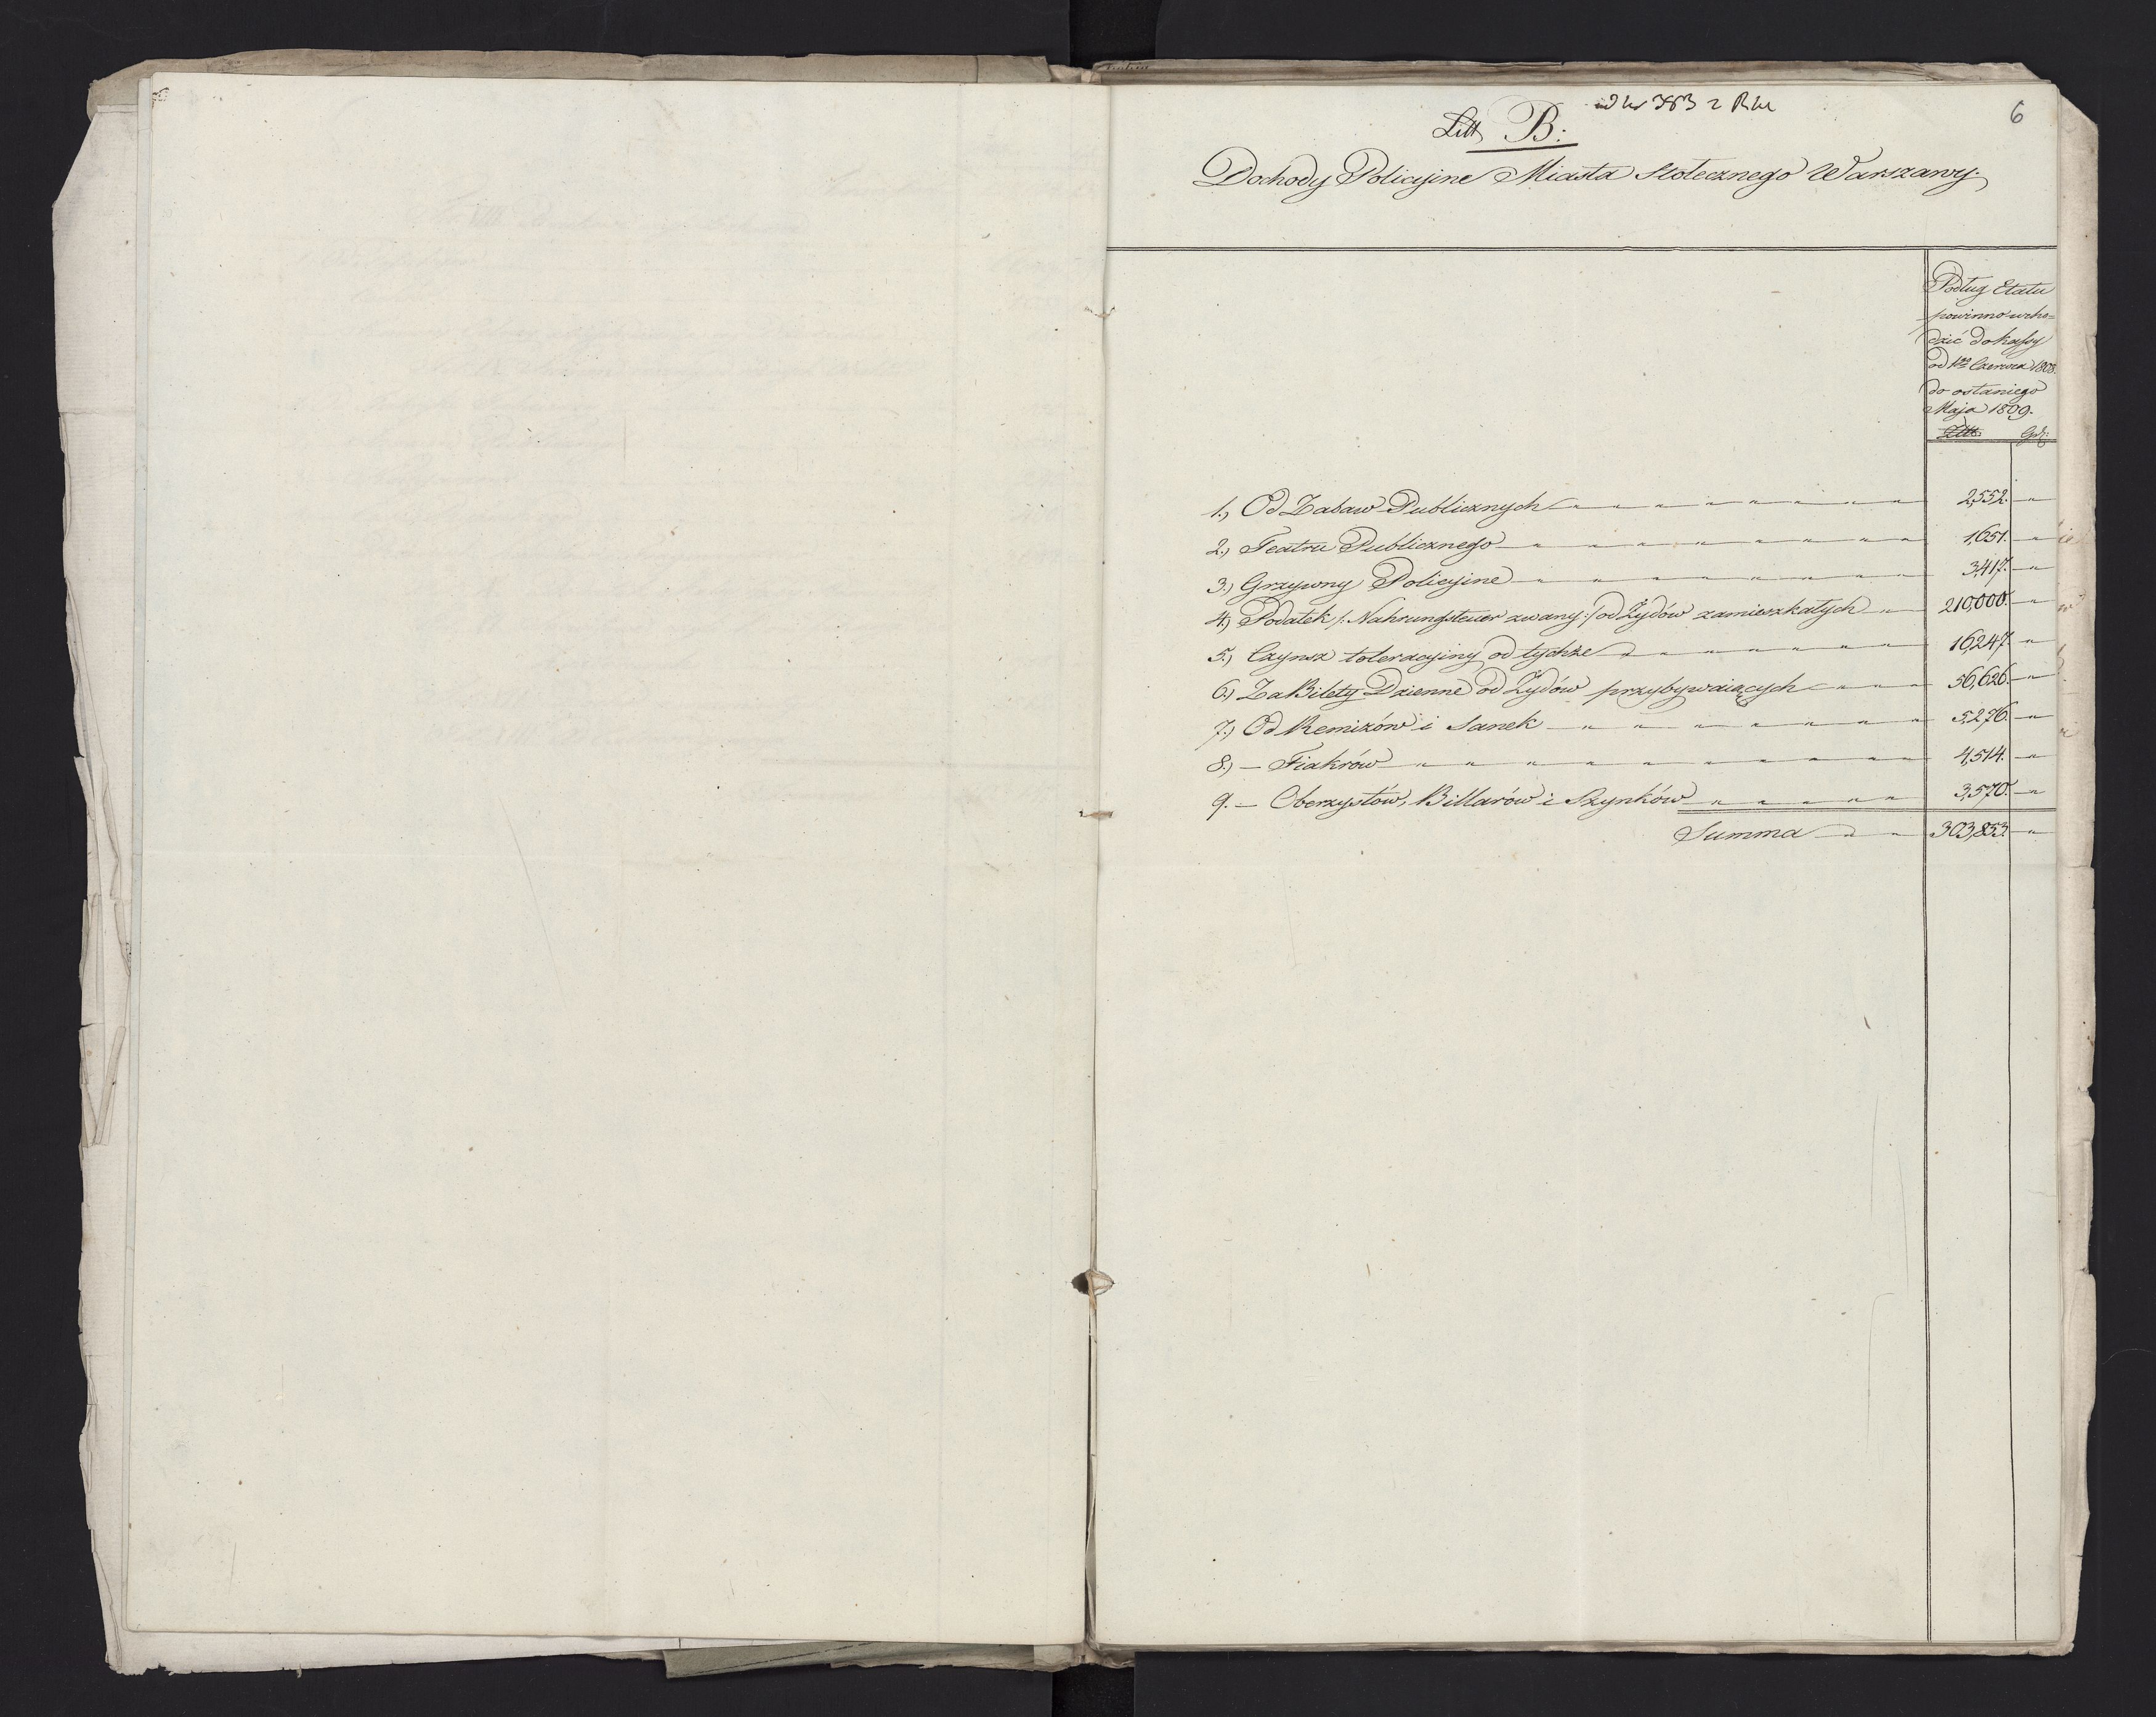 6
Litt B:
Dochody Policyine Miasta Stołecznego Warszawy.
Podług Etatu
powinno wcho=
dzić do kassy
od 1go Czerwca 1808.
do ostaniego
Maja 1809.
Złtt. Gr:
1.) Od Zabaw Publicznych 2,552.
2.) Teatru Publicznego 1,651.
3.) Grzywny Policyine 3,417.
4.) Podatek /: Nahrungsteuer zwany :/ od Żydów zamieszkałych 210,000.
5.) Czynsz toleracyiny od tychże 16,247.
6.) Za Bilety Dzienne od Żydów przybywaiących 56,626.
7.) Od Remizów i Sanek 5,276.
8.) — Fiakrów 4,514.
9. — Oberzystów, Billarów i Szynków 3,570.
Summa 303,853.